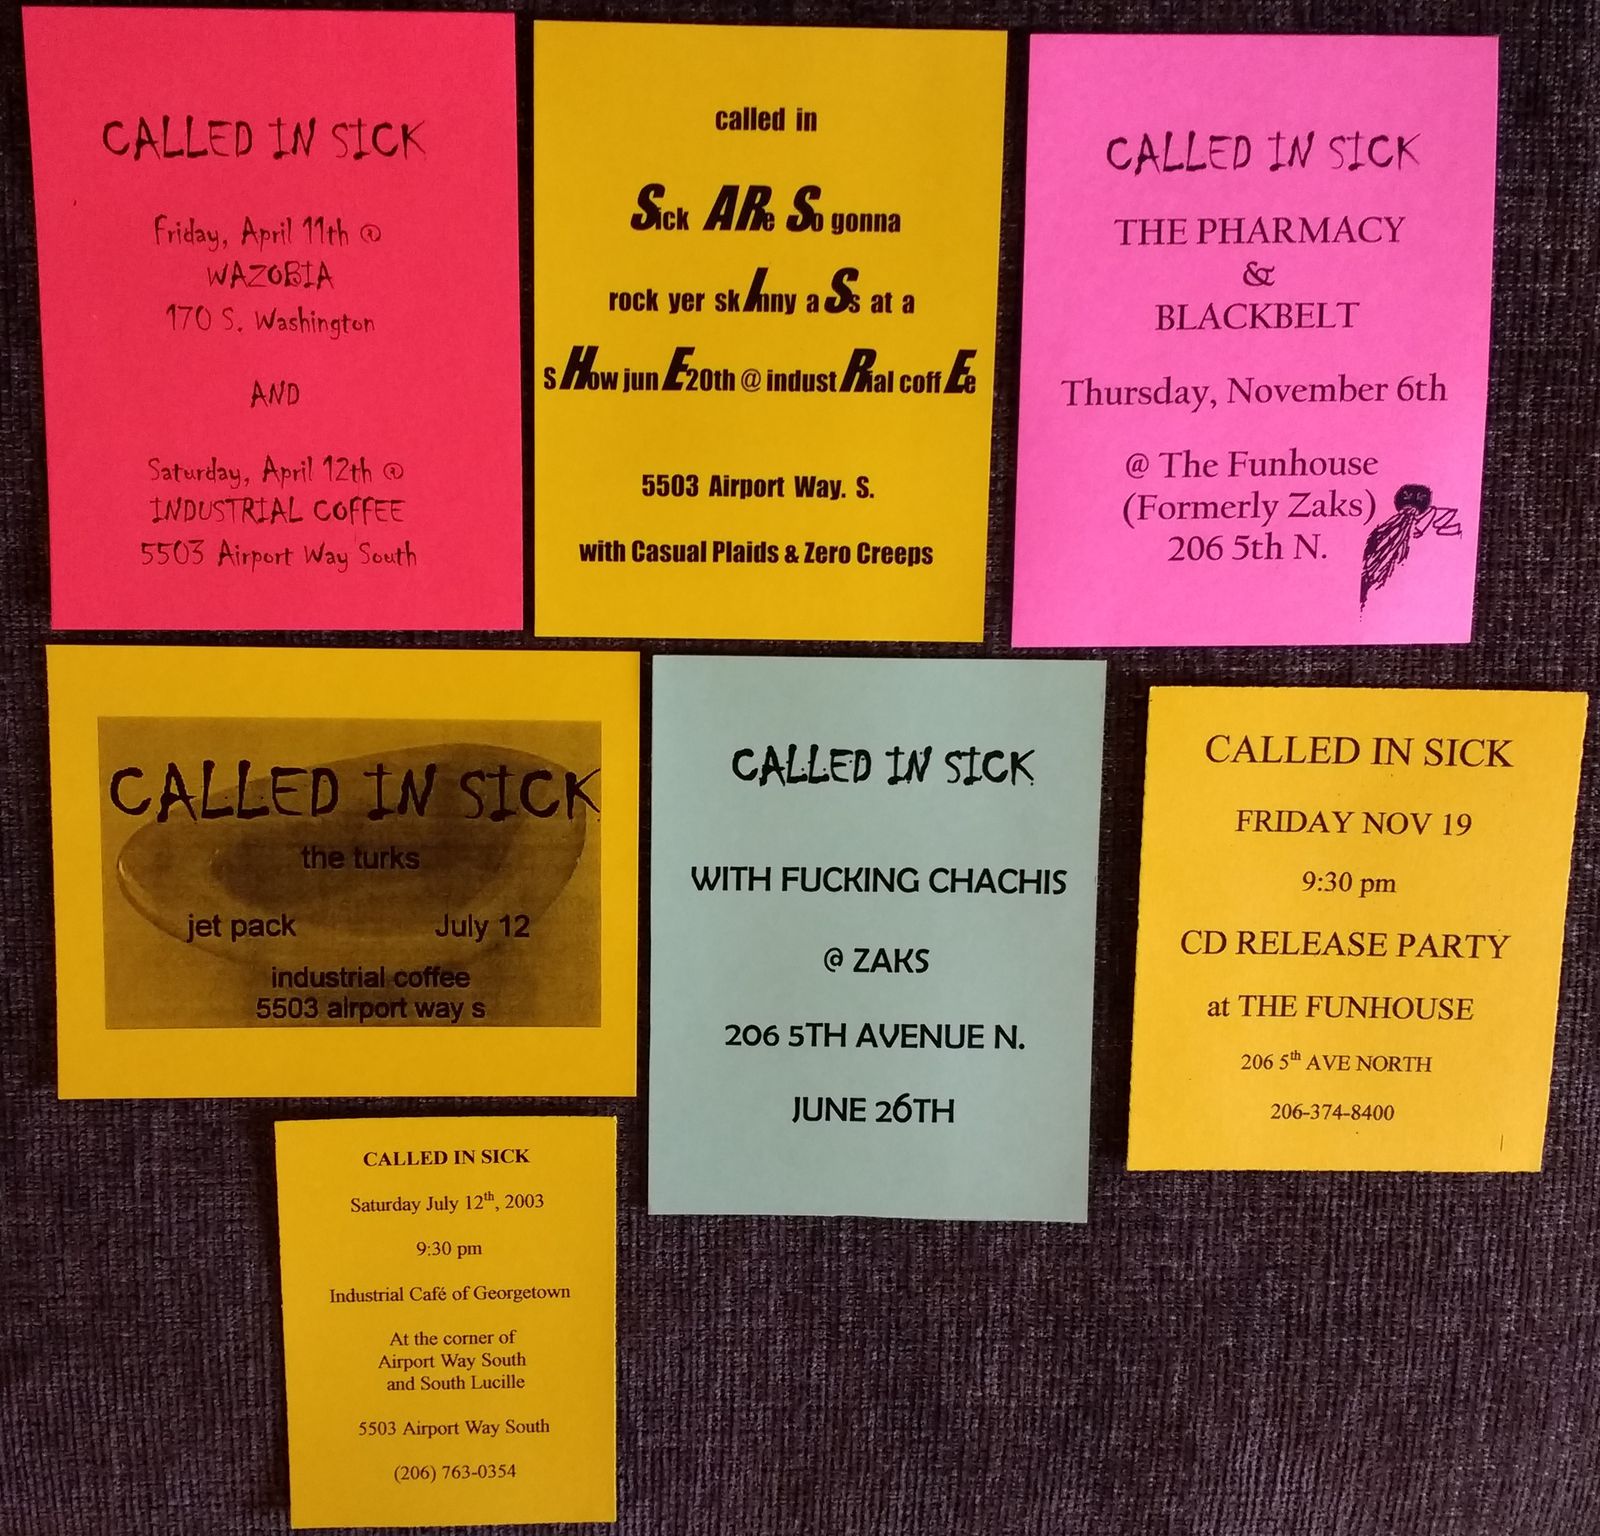 CALLED IN SICK
Friday, April 11th @
WAZOBIA
170 S. Washington
AND
Saturday, April 12th @
INDUSTRIAL COFFEE
5503 Airport Way South
called in
Sick ARe So gonna
rock yer skInny aSs at a
sHow junE20th @ industRial coffEe
5503 Airport Way. S.
with Casual Plaids & Zero Creeps
CALLED IN SICK
THE PHARMACY
&
BLACKBELT
Thursday, November 6th
@ The Funhouse
(Formerly Zaks)
206 5th N.
CALLED IN SICK
the turks
jet pack July 12
industrial coffee
5503 airport way s
CALLED IN SICK
WITH FUCKING CHACHIS
@ ZAKS
206 5TH AVENUE N.
JUNE 26TH
CALLED IN SICK
FRIDAY NOV 19
9:30 pm
CD RELEASE PARTY
at THE FUNHOUSE
206 5th AVE NORTH
206-374-8400
CALLED IN SICK
Saturday July 12th, 2003
9:30 pm
Industrial Café of Georgetown
At the corner of
Airport Way South
and South Lucille
5503 Airport Way South
(206) 763-0354